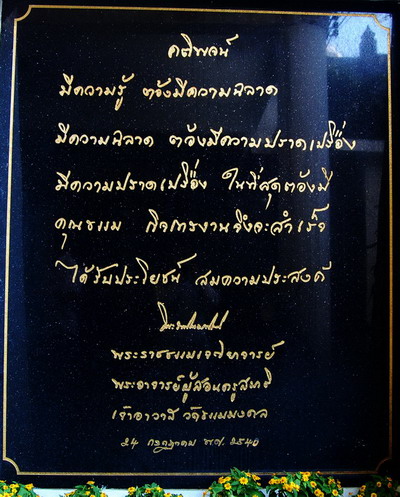 คติพจน์
มีความรู้ ต้องมีความฉลาด
มีความฉลาด ต้องมีความปราดเปรื่อง
มีความปราดเปรื่อง ในที่สุดต้องมี
คุณธรรม กิจการงานจึงจะสำเร็จ
ได้รับประโยชน์ สมความประสงค์
พระราชธรรมเจติยาจารย์
พระอาจารย์ผู้สอนครูสมาธิ
เจ้าอาวาส วัดธรรมมงคล
24 กรกฎาคม พ.ศ. 2540